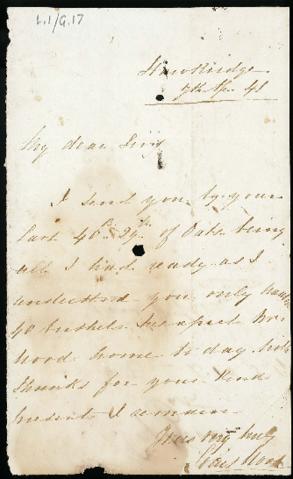 L.1/G.17
Hawkridge
My dear Sir
I send you by your
Cart 40 of Oats being
all I had ready as I
understood you only want
40 bushels. We expect Mr
Wood home to day. With
thanks for your kind
present I remain
Yours very truly